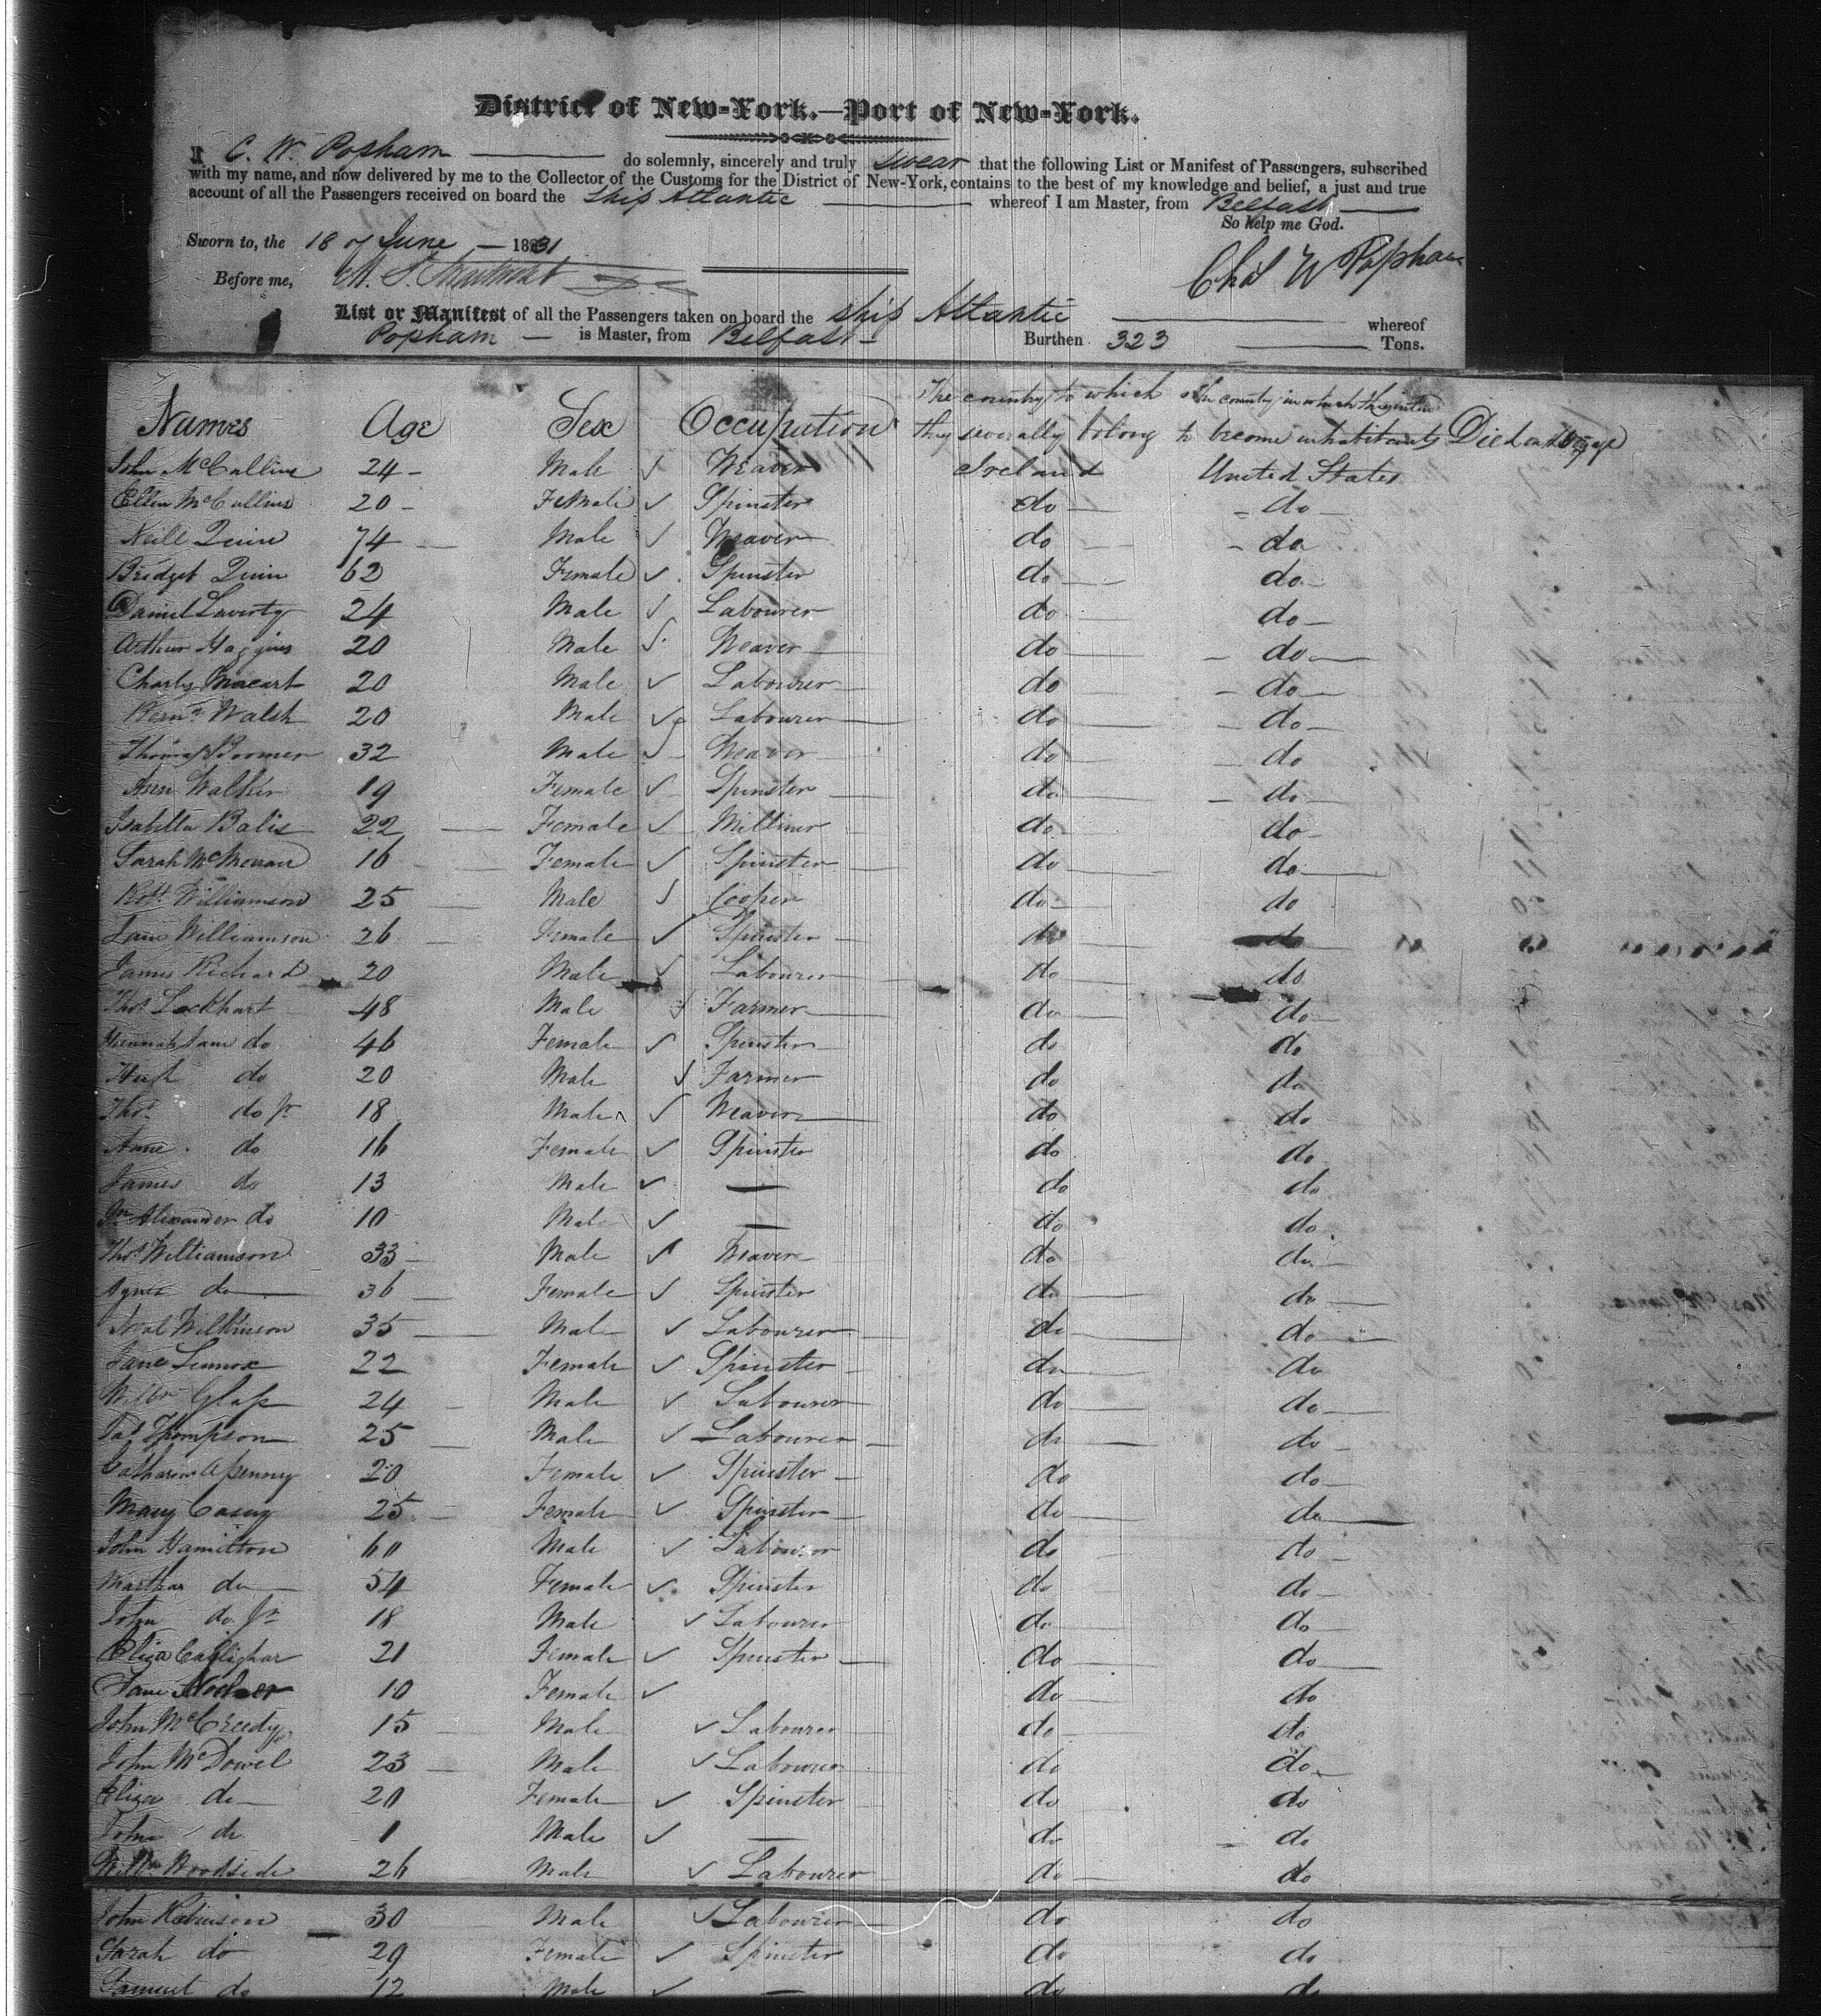 District of New-York.—Port of New-York.
I C. W. Popham do solemnly, sincerely and truly swear that the following List or Manifest of Passengers, subscribed
with my name, and now delivered by me to the Collector of the Customs for the District of New-York, contains to the best of my knowledge and belief, a just and true
account of all the Passengers received on board the Ship Atlantic whereof I am Master, from Belfast
So help me God.
Sworn to, the 18 of June 1831
Chs W Popham
Before me,
List or Manifest of all the Passengers taken on board the ship Atlantic whereof
Popham is Master, from Belfast Burthen 323 Tons.
Names Age Sex Occupution The country to which they severally belong The country in which they intend to become inhabitants Died on Voyage
John McCallins 24 Male Weaver Ireland United States
Ellen McCallins 20 Female Spinster do do
Neill Quin 74 Male Weaver do do
Bridget Quin 62 Female Spinster do do
Daniel Laverty 24 Male Labourer do do
Arthur Haggins 20 Male Weaver do do
Charles Macart 20 Male Labourer do do
Bernd Walsh 20 Male Labourer do do
Thomas Boomer 32 Male Weaver do do
Ann Walker 19 Female Spinster do do
Isabella Balis 22 Female Milliner do do
Sarah McMenan 16 Female Spinster do do
Robt Williamson 25 Male Cooper do do
Jane Williamson 26 Female Spinster do do
James Richard 20 Male Labourer do do
Thos Lockhart 48 Male Farmer do do
Hannah Jane do 46 Female Spinster do do
Hugh do 20 Male Farmer do do
Thos do Jr 18 Male Weaver do do
Anne do 16 Female Spinster do do
James do 13 Male — do do
Jn Alexander do 10 Male — do do
Thos Williamson 33 Male Weaver do do
Agnes do 36 Female Spinster do do
Neal Wilkinson 35 Male Labourer do do
Jane Lennox 22 Female Spinster do do
Willm Glass 24 Male Labourer do do
Jas Thompson 25 Male Labourer do do
Catharine Apenny 20 Female Spinster do do
Mary Casey 25 Female Spinster do do
John Hamilton 60 Male Labouror do do
Marthar do 54 Female Spinster do do
John do Jr 18 Male Labourer do do
Eliza Callighar 21 Female Spinster do do
Jane 10 Female do do
John McCreedy 15 Male Labourer do do
John McDowel 23 Male Labourer do do
Eliza do 20 Female Spinster do do
John do 1 Male — do do
Willm Woodside 26 Male Labourer do do
John Robinson 30 Male Labourer do do
Sarah do 29 Female Spinster do do
Samuel do 12 Male — do do